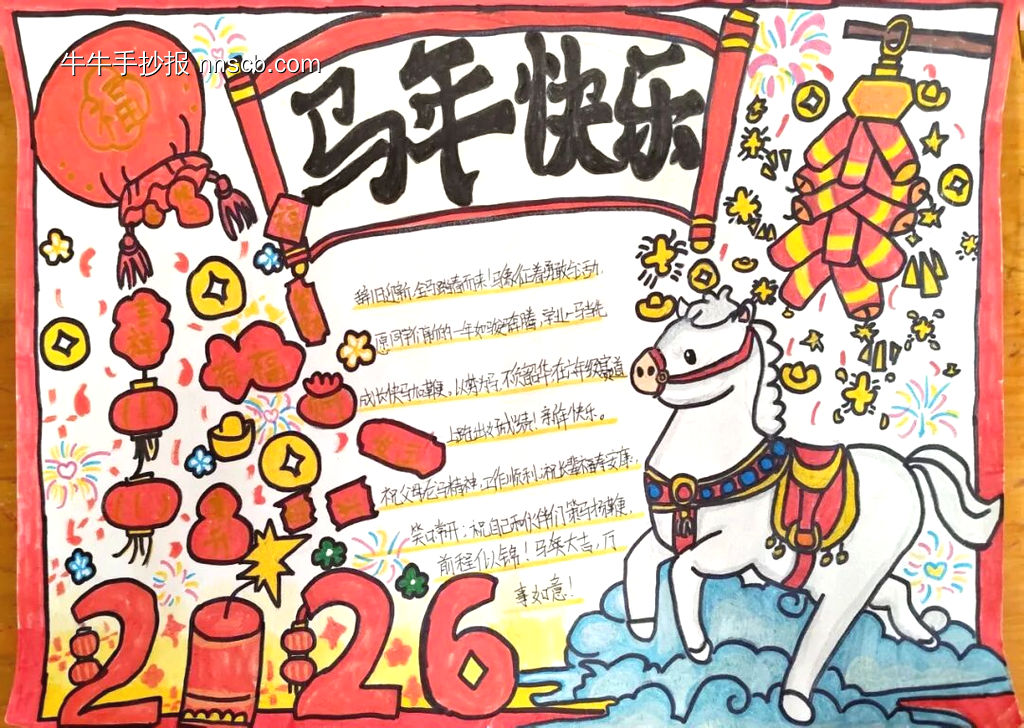 牛牛手抄报 nnscb.com
福
马年快乐
福
吉祥
有福
辞旧迎新,金马踏春而来!马象征着勇敢与活力,
愿同学们新的一年如骏马奔腾,学业一马当先
成长快马加鞭,以梦为马,不负韶华,在六年级赛道
上跑出好成绩!新年快乐。
祝父母龙马精神,工作顺利;祝长辈福寿安康,
笑口常开;祝自己和伙伴们策马扬鞭,
前程似锦!马年大吉,万
事如意!
2026